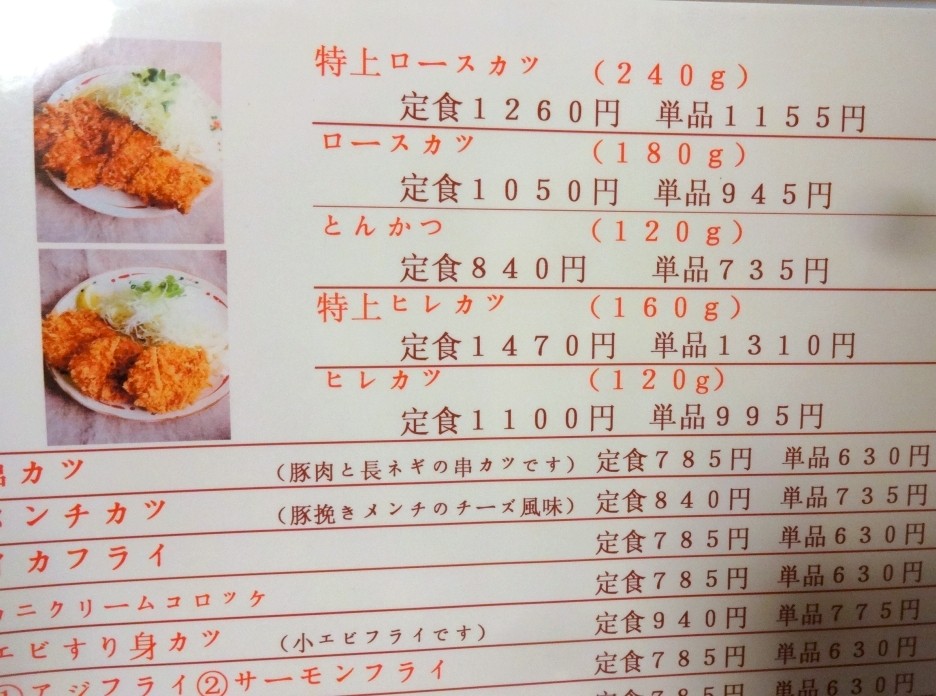 特上ロースカツ （２４０ｇ）
定食１２６０円 単品１１５５円
ロースカツ （１８０ｇ）
定食１０５０円 単品９４５円
とんかつ （１２０ｇ）
定食８４０円 単品７３５円
特上ヒレカツ （１６０ｇ）
定食１４７０円 単品１３１０円
ヒレカツ （１２０g）
定食１１００円 単品９９５円
串カツ （豚肉と長ネギの串カツです） 定食７８５円 単品６３０円
メンチカツ （豚挽きメンチのチーズ風味） 定食８４０円 単品７３５円
イカフライ 定食７８５円 単品６３０円
カニクリームコロッケ 定食７８５円 単品６３０円
エビすり身カツ （小エビフライです） 定食９４０円 単品７７５円
①アジフライ②サーモンフライ 定食７８５円 単品６３０円
定食７８５円 単品６３０円